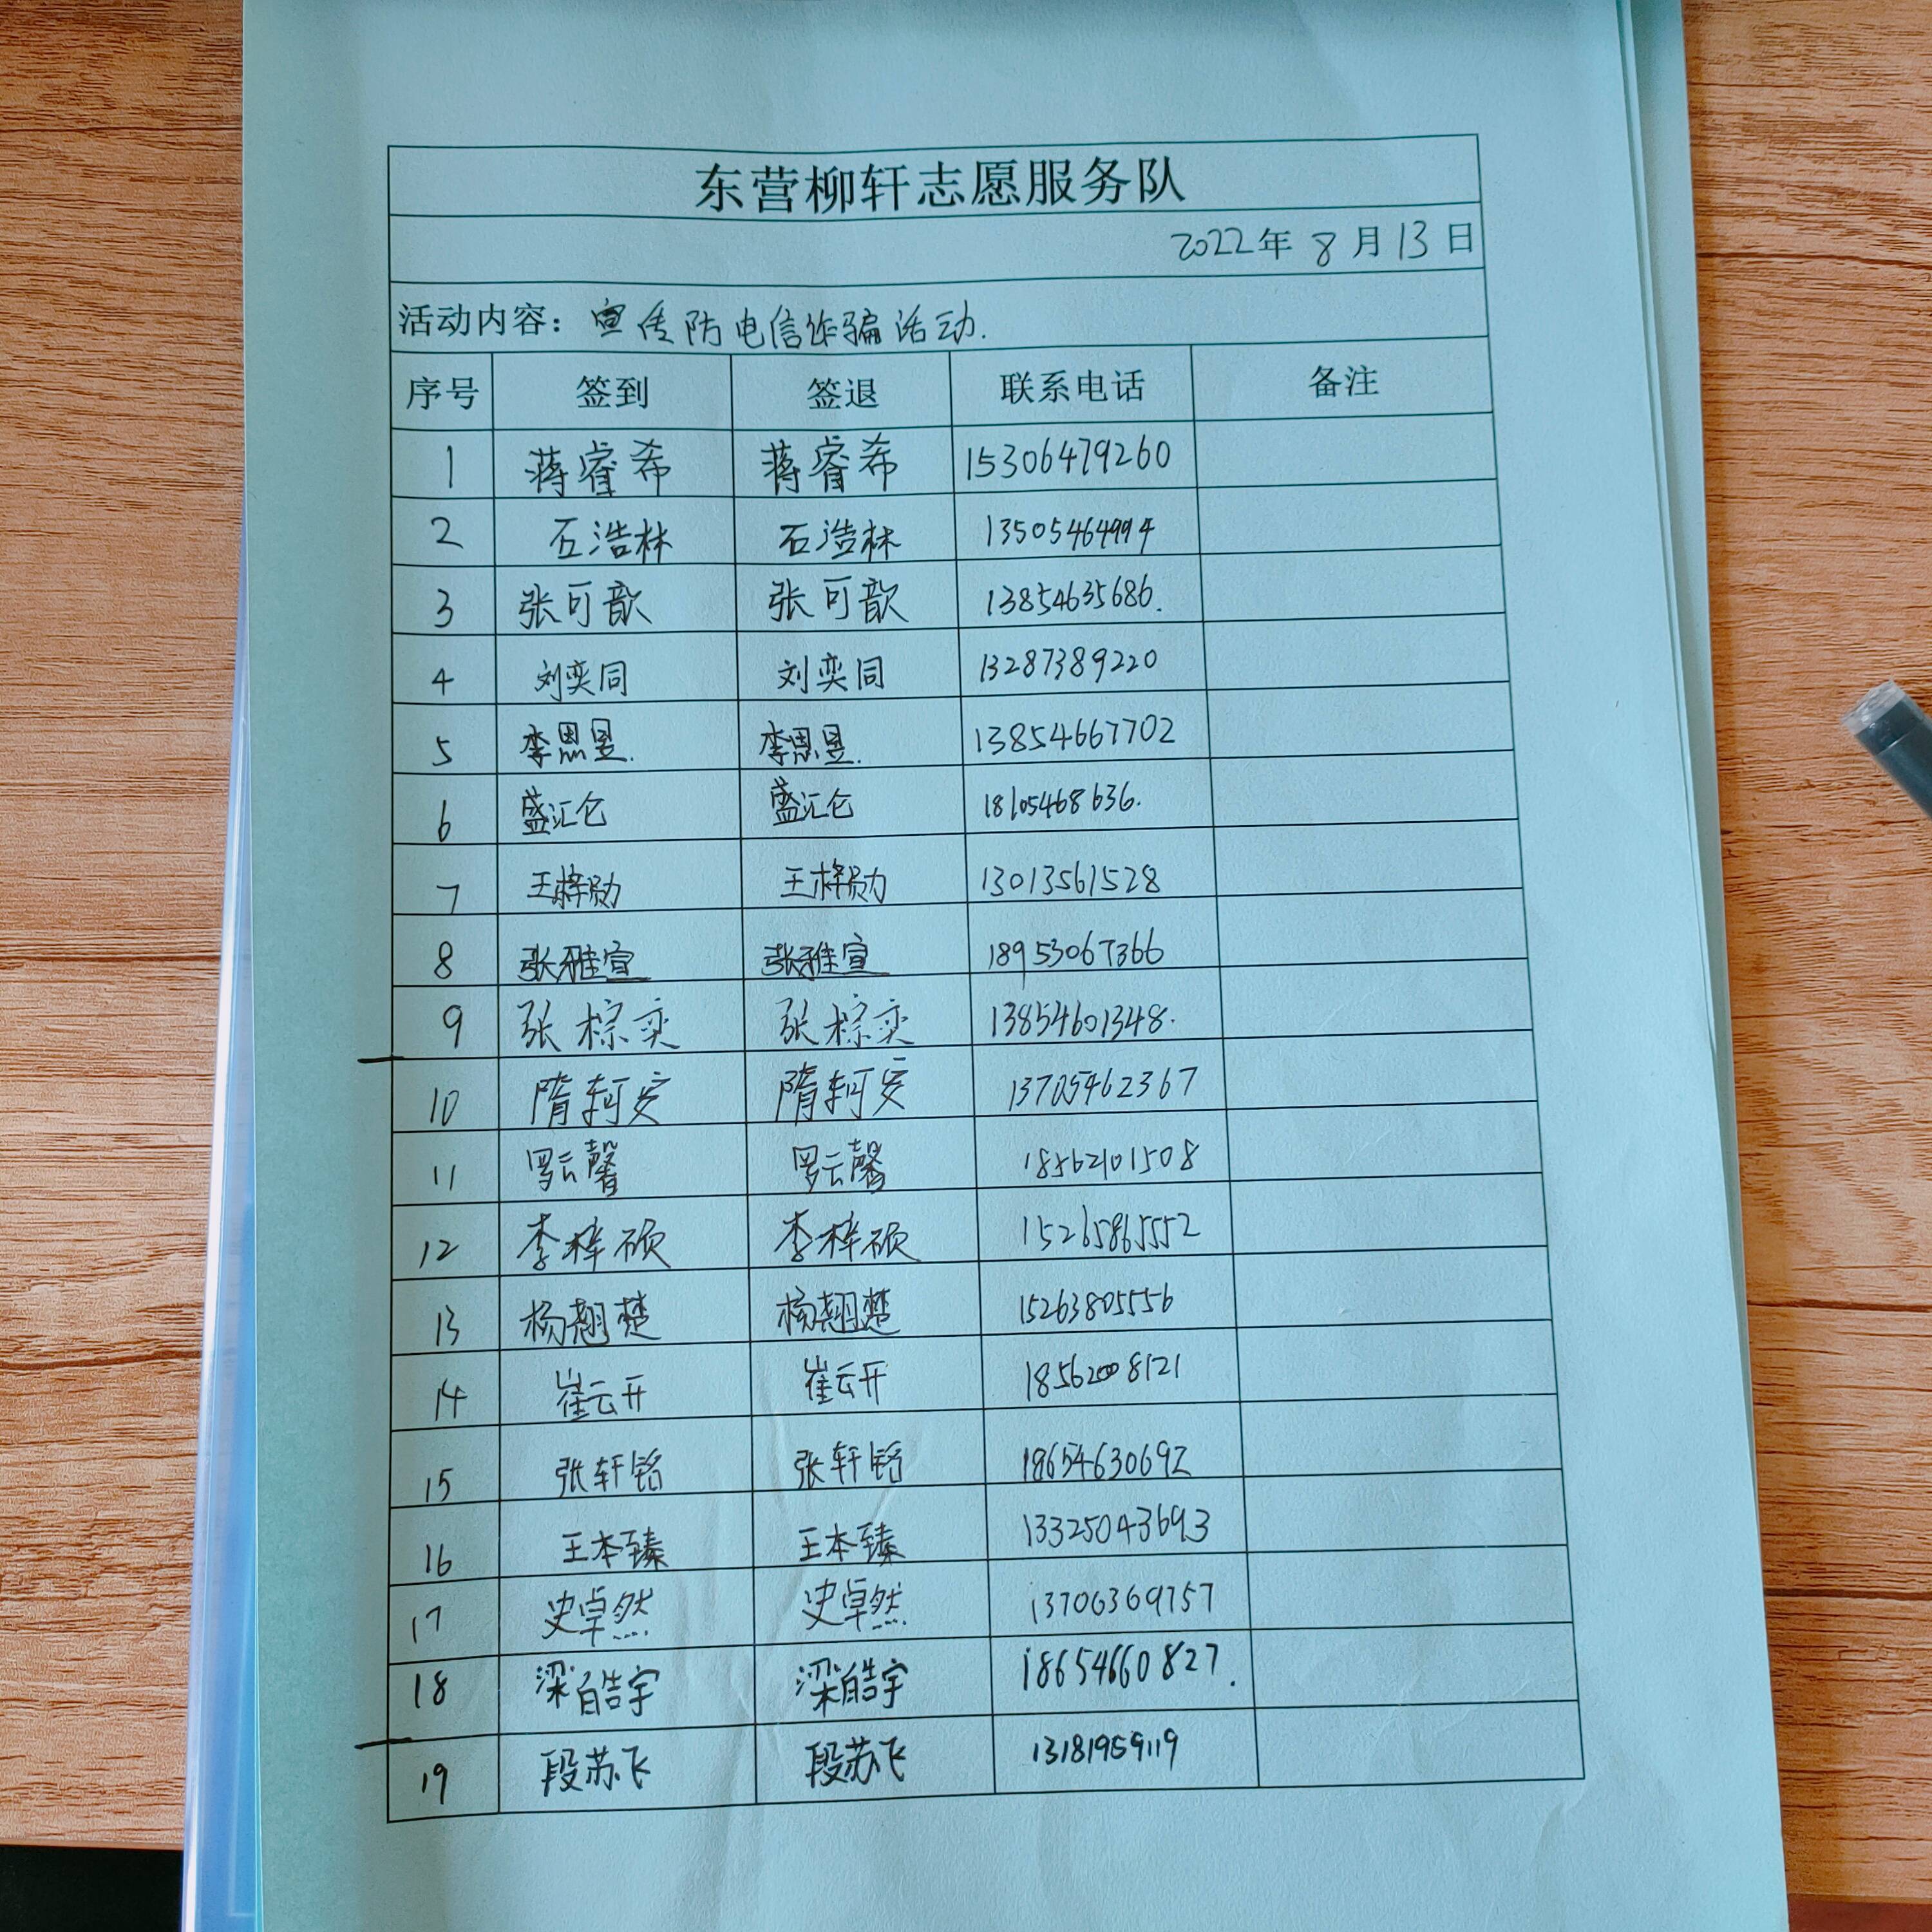 东营柳轩志愿服务队
2022年 8 月 13 日
活动内容：宣传防电信诈骗活动.
序号 签到 签退 联系电话 备注
1 蒋睿希 蒋睿希 15306479260
2 石浩林 石浩林 13505464994
3 张可歆 张可歆 13854635686.
4 刘奕同 刘奕同 13287389220
5 李思昱. 李思昱. 13854667702
6 盛汇仑 盛汇仑 18105468636.
7 王梓勋 王梓勋 13013561528
8 张雅宣 张雅宣 18953067366
9 张棕奕 张棕奕 13854601348.
10 隋轲安 隋轲安 13705462367
11 罗云馨 罗云馨 18562101508
12 李梓硕 李梓硕 15265865552
13 杨翘楚 杨翘楚 15263805556
14 崔云开 崔云开 18562008121
15 张轩铭 张轩铭 18654630692
16 王本臻 王本臻 13325043693
17 史卓然 史卓然 13706369757
18 梁皓宇 梁皓宇 18654660827.
19 段苏飞 段苏飞 13181959119